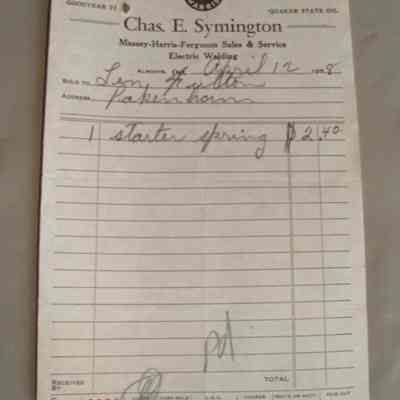 GOODYEAR
QUAKER STATE OIL
Chas. E. Symington
Massey-Harris-Ferguson Sales & Service
Electric Welding
ALMONTE, ONT. April 12 1958
SOLD TO Len Fulton
ADDRESS Pakenham
1 starter spring $2.40
pd
RECEIVED BY
TOTAL